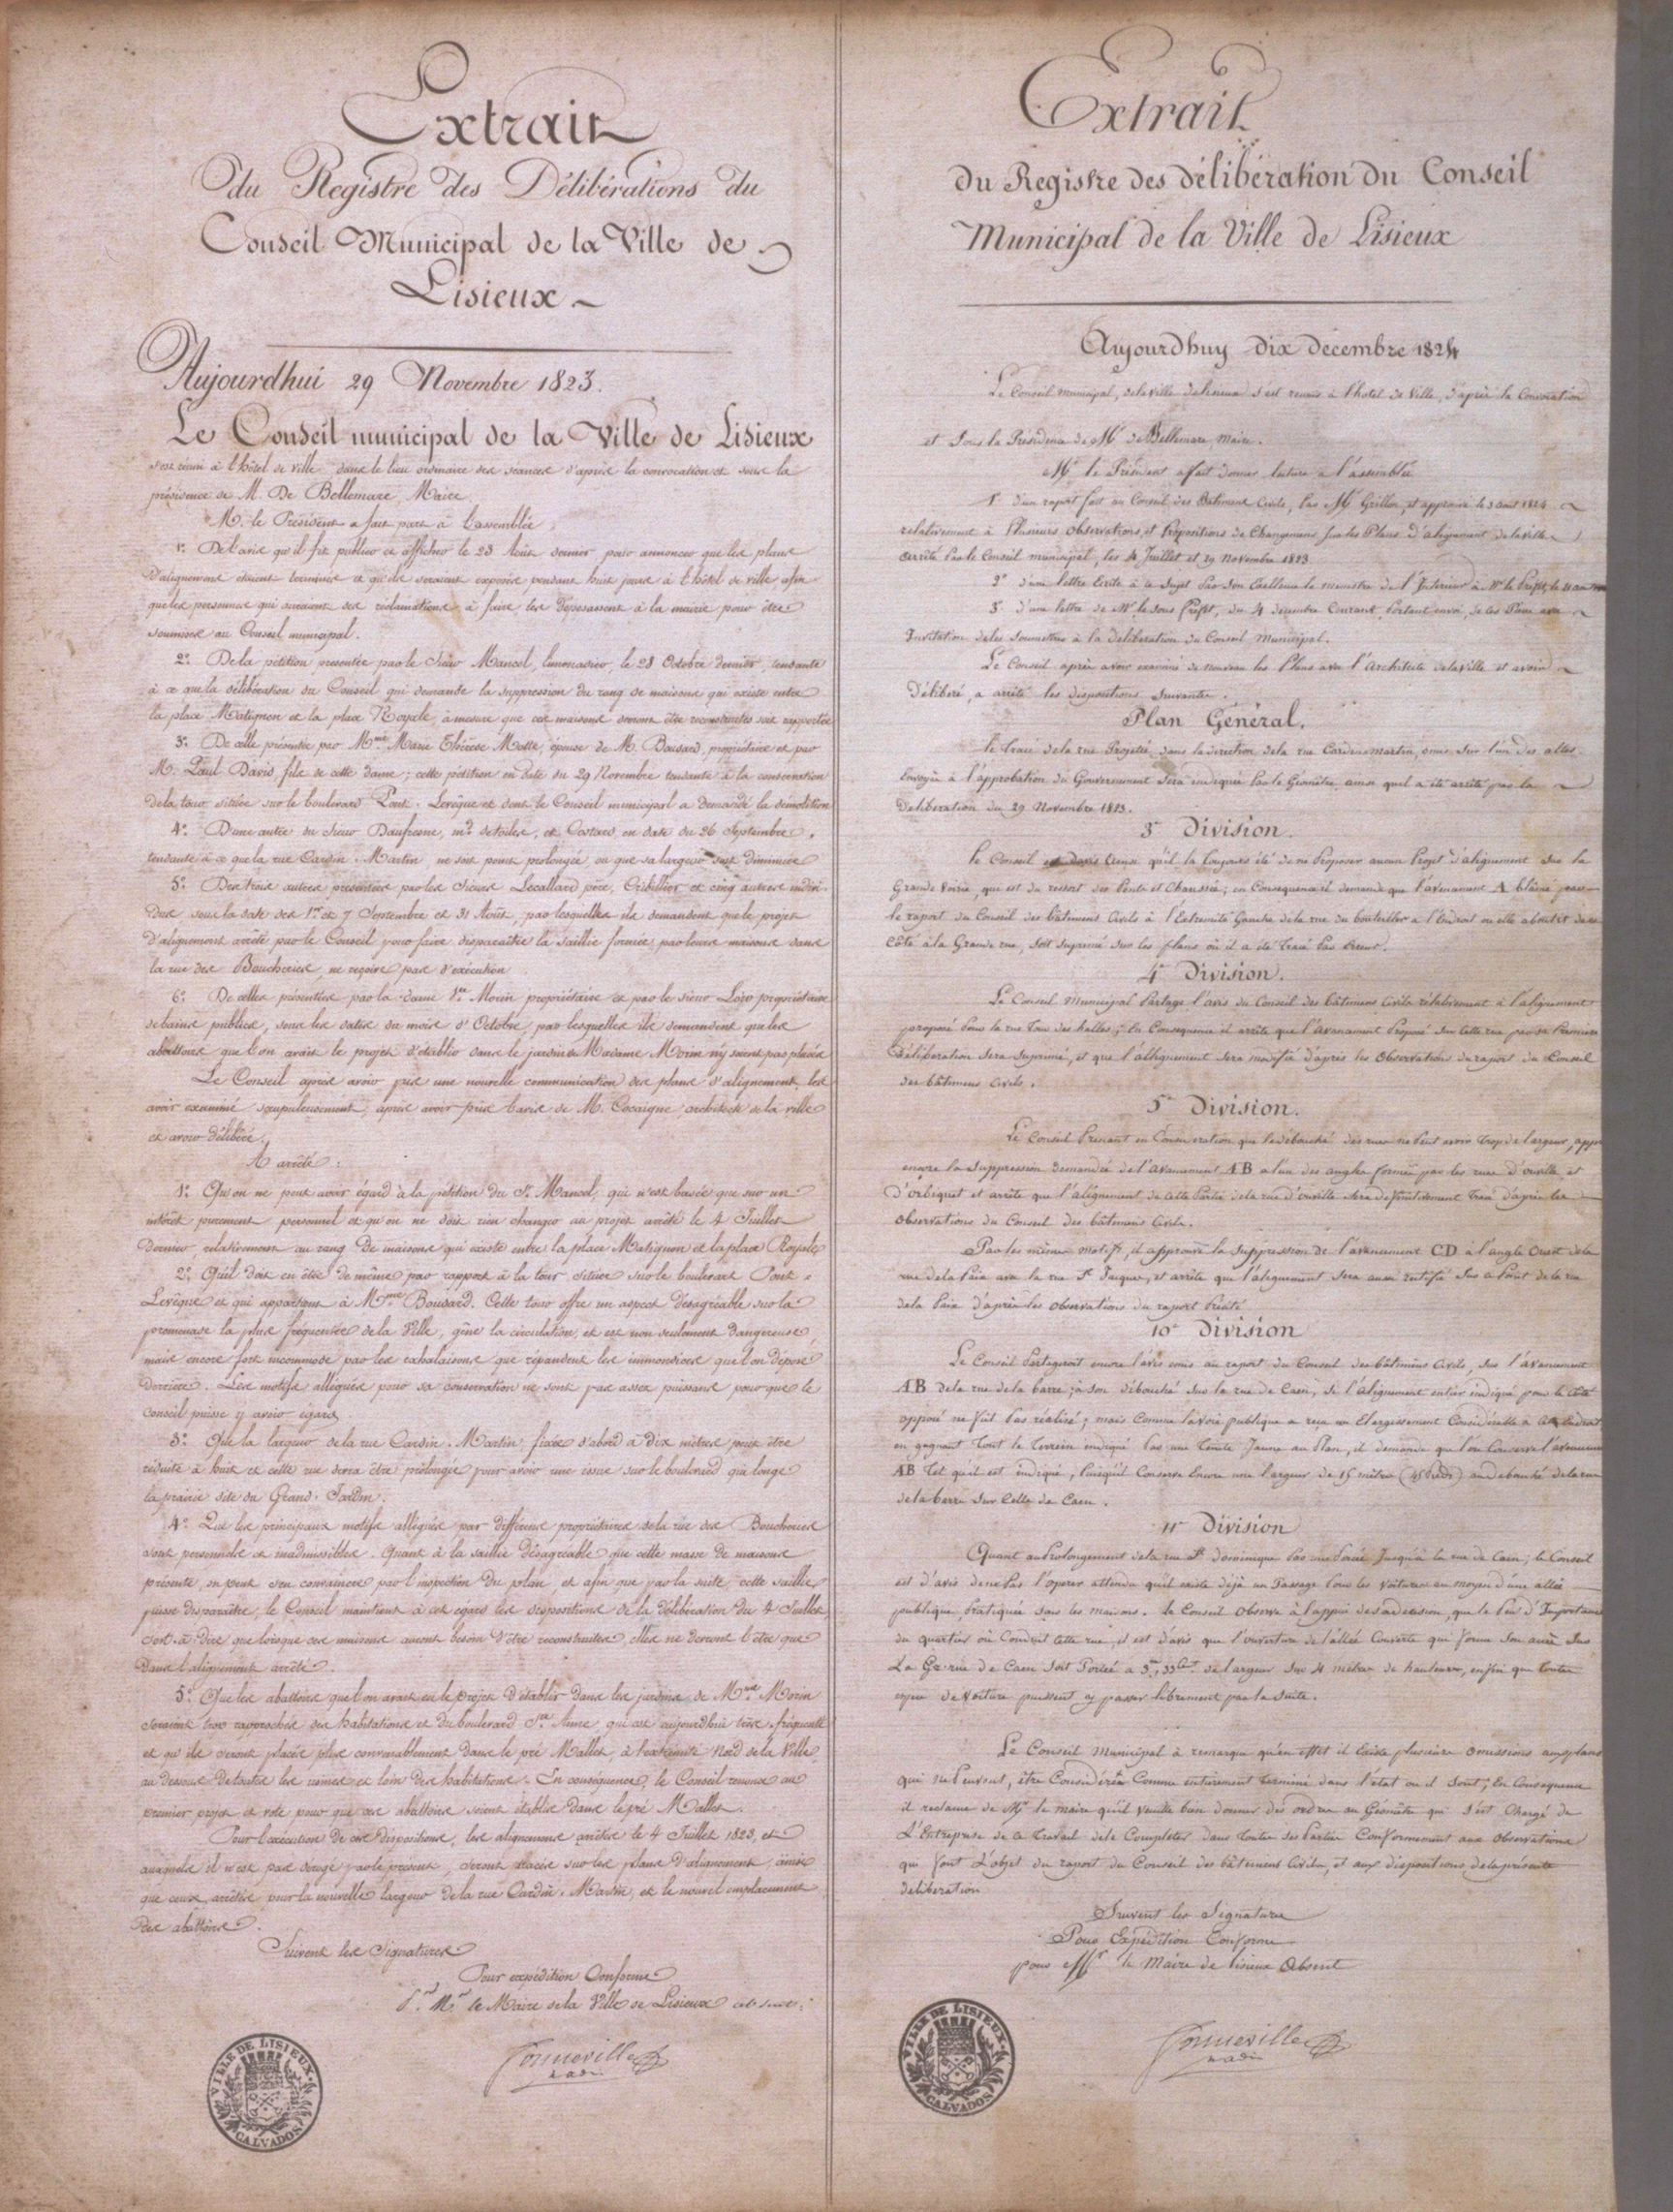 Extrait
du Registre des Délibérations du
Conseil Municipal de la Ville de
Lisieux
Aujourdhui 29 Novembre 1823.
Le Conseil municipal de la Ville de Lisieux
s'est réuni à l'hôtel de Ville dans le lieu ordinaire des séances d'après la convocation et sous la
présidence de M. De Bellemare, Maire.
M. le Président a fait part à l'assemblée,
1º. De l'avis qu'il fit publier et afficher le 23 Août dernier pour annoncer que les plans
d'alignemens étaient terminés et qu'ils seraient exposés pendant huit jours à l'hôtel de ville afin
que les personnes qui auraient des réclamations à faire les déposassent à la mairie pour être
soumises au Conseil municipal.
2º. De la pétition présentée par le Sieur Mancel, limonadier, le 28 Octobre dernier, tendante
à ce que la délibération du Conseil qui demande la suppression du rang de maisons qui existe entre
la place Matignon et la place Royale, à mesure que ces maisons devront être reconstruites soit rapportée
3º. De celle présentée par Mme Marie Thérèse Motte, épouse de M. Bousard, propriétaire et par
M. Paul Davis, fils de cette dame; cette pétition en date du 29 Novembre tendante à la conservation
de la tour située sur le boulevard Pont-Levêque et dont le Conseil municipal a demandé la démolition
4º. D'une autre du Sieur Daufresne, md de toiles, et Costard en date du 26 Septembre,
tendante à ce que la rue Cardin-Martin ne soit point prolongée ou que sa largeur soit diminuée
5º. Des trois autres présentées par les Sieurs Lecallard père, Cribellier et cinq autres indivi-
dus, sous la date des 1er et 7 Septembre et 31 Août, par lesquelles ils demandent que le projet
d'alignement arrêté par le Conseil pour faire disparaître la saillie formée par leurs maisons dans
la rue des Boucheries, ne reçoive pas d'exécution
6º. De celles présentées par la dame Vve Morin propriétaire et par le sieur Loir propriétaire
de bains publics, sous les dates du mois d'Octobre, par lesquelles ils demandent que les
abattoirs que l'on avait le projet d'établir dans le jardin de Madame Morin n'y soient pas placés
Le Conseil après avoir pris une nouvelle communication des plans d'alignement, les
avoir examiné scrupuleusement, après avoir pris l'avis de M. Cocaigne architecte de la ville
et avoir délibéré.
A arrêté:
1º. Qu'on ne peut avoir égard à la pétition du Sr. Mancel, qui n'est basée que sur un
intérêt purement personnel et qu'on ne doit rien changer au projet arrêté le 4 Juillet
dernier, relativement au rang de maisons qui existe entre la place Matignon et la place Royale,
2º. Qu'il doit en être de même par rapport à la tour située sur le boulevart Pont-
Levêque et qui appartient à Mme Bousard. Cette tour offre un aspect désagréable sur la
promenade la plus fréquentée de la Ville, gêne la circulation, et est non seulement dangereuse,
mais encore fort incommode par les exhalaisons que répandent les immondices que l'on dépose
derrière. Les motifs allégués pour sa conservation ne sont pas assez puissans pour que le
conseil puisse y avoir égard.
3º. Que la largeur de la rue Cardin-Martin, fixée d'abord à dix mètres peut être
réduite à huit et cette rue devra être prolongée pour avoir une issue sur le boulevard qui longe
la prairie dite du Grand-Jardin.
4º. Que les principaux motifs allégués par différens propriétaires de la rue des Boucheries
sont personnels et inadmissibles. Quant à la saillie désagréable que cette masse de maisons
présente, on peut s'en convaincre par l'inspection du plan, et afin que par la suite cette saillie
puisse disparaître, le Conseil maintient à cet égard les dispositions de la délibération du 4 Juillet
c'est-à-dire que lorsque ces maisons auront besoin d'être reconstruites, elles ne devront l'être que
dans l'alignement arrêté.
5º. Que les abattoirs que l'on avait eu le projet d'établir dans les jardins de Mme Morin
seraient trop rapprochés des habitations et du boulevard Ste Anne, qui est aujourd'hui très-fréquenté
et qu'ils seront placés plus convenablement dans le pré Mallet, à l'extrémité Nord de la Ville,
au dessous de toutes les usines et loin des habitations. En conséquence, le Conseil renonce au
premier projet et vote pour que ces abattoirs soient établis dans le pré Mallet.
Pour l'exécution de ces dispositions, les alignemens arrêtés le 4 Juillet 1823, et
auxquels il n'est pas dérogé par le présent, seront tracés sur les plans d'alignement, ainsi
que ceux arrêtés pour la nouvelle largeur de la rue Cardin-Martin, et le nouvel emplacement
des abattoirs.
Suivent les signatures
Pour expédition Conforme
Pr. Mr. le Maire de la Ville de Lisieux absent:
Fonneville
VILLE DE LISIEUX
CALVADOS
Extrait
Du Registre des délibération du Conseil
Municipal de la Ville de Lisieux
Aujourdhuy dix décembre 1824
Le Conseil municipal, de la Ville de Lisieux s'est reunis à l'hotel de Ville, d'après la Convocation
et sous la Présidence de Mr de Bellemare, Maire.
Mr le Président a fait donner lecture a l'assemblée
1º d'un raport fait au Conseil des Bâtimens Civils, par Mr Grillon, et approuvé le 3 aout 1824
relativement à Plusieurs observations et Propositions de Changemens sur les Plans d'alignement de la ville
arrêté Par le Conseil municipal, les 4 Juillet et 29 Novembre 1823.
2º d'une lettre Ecrite à ce Sujet Par Son Excellence le ministre de l'Intérieur à Mr le Préfet, le
3º d'une lettre de Mr le sous Préfet, du 4 décembre Courant, Portant envoi de les Plans avec
Invitation de les Soumettre à la deliberation du Conseil Municipal.
Le Conseil après avoir examiné de nouveau les Plans avec l'Architecte de la Ville et avoir
Délibéré, a arrêté les dispositions Suivantes.
Plan Général.
le tracé de la rue Projetée, dans la direction de la rue Cardin martin, omis sur l'un des atlas
Envoyés à l'approbation du Gouvernement Sera indiquée Par le Géomètre, ainsi quel a été arrêté par la
Deliberation du 29 Novembre 1823.
3e Division.
le Conseil ainsi qu'il la toujours été de ne Proposer aucun Projet d'alignement sur la
Grande Voirie, qui est du ressort des Ponts et Chaussée; en Consequence il demande que l'avancement A blâmé par
le raport du Conseil des bâtimens Civils à l'Extremité Gauche de la rue du bouteiller a l'Endroit ou elle aboutit de ce
Côté à la Grande rue, soit suprimé sur les plans où il a été tracé Par Erreur.
4e Division.
Le Conseil Municipal Partage l'avis du Conseil des bâtimens Civils relativement à l'alignement
proposé pour la rue Tour des halles; En Consequence il arrête que l'Avancement Proposé sur Cette rue par sa Premiere
Délibération Sera Suprimé, et que l'allignement sera modifié d'après les Observations du raport du Conseil
des bâtimens Civils.
5e Division.
Le Conseil Prenant en Consideration que le débouché des rues ne Peut avoir trop de largeur,
encore la suppression demandée de l'Avancement AB a l'un des angles formés par les rues d'ouville et
d'orbiquet et arrête que l'alignement de Cette Partie de la rue d'ouville Sera définitivement tracé d'après les
Observations du Conseil des bâtimens Civils.
Par les mêmes motifs, il approuve la Suppression de l'avancement CD à l'angle Ouest de la
rue de la Paix avec la rue St Jacques, et arrête que l'alignement sera aussi rectifié Sur ce Point de la rue
de la Paix d'après les Observations du raport Précité
10e Division
Le Conseil Partageroit encore l'avis émis au raport du Conseil des bâtimens Civils, sur l'avancement
AB de la rue de la barre, à son débouché sur la rue de Caen, Si l'alignement entier indiqué pour le Côté
opposé ne fut Pas réalisé; mais Comme la voie publique a reçu un Elargissement Considérable à
en gagnant Tout le Terrein indiqué Par une Teinte Jaune au Plan, il demande que l'on Conserve l'avancement
AB Tel qu'il est indiqué, Puisqu'il Conserve Encore une largeur de 15 mètres (45 Pieds) au débouché de la rue
de la barre sur Celle de Caen.
11e Division
Quant au Prolongement de la rue St dominique Jusqu'à la rue de Caen; le Conseil
est d'avis de ne Pas l'operer attendu qu'il existe déjà un Passage Pour les Voitures au moyen d'une allée
publique, Pratiquée sous les maisons. Le Conseil observe à l'appui de sa decision, que le Peu d'Importance
du quartier où Conduit Cette rue, il est d'avis que l'ouverture de l'allée Couverte qui forme son accès sur
La Gde rue de Caen soit Portée a 3m,33c. de largeur sur 4 mètres de hauteur, enfin que toutes
espece de voiture puissent y passer librement par la suite.
Le Conseil Municipal à remarqué qu'en effet il Existe plusieurs omissions aux plans
qui ne Peuvent, être Considérés Comme entierement terminé dans l'état ou il sont; En Consequence
il reclame de Mr le maire qu'il veuille bien donner des ordres au Géomètre qui s'est Chargé de
L'Entreprise de ce travail de le Completer dans toutes ses Parties Conformement aux Observations
qui font l'objet du raport du Conseil des bâtimens Civils, et aux dispositions de la présente
deliberation
Suivent les Signatures
Pour Expédition Conforme
pour Mr le Maire de lisieux Absent
Fonneville
VILLE DE LISIEUX
CALVADOS